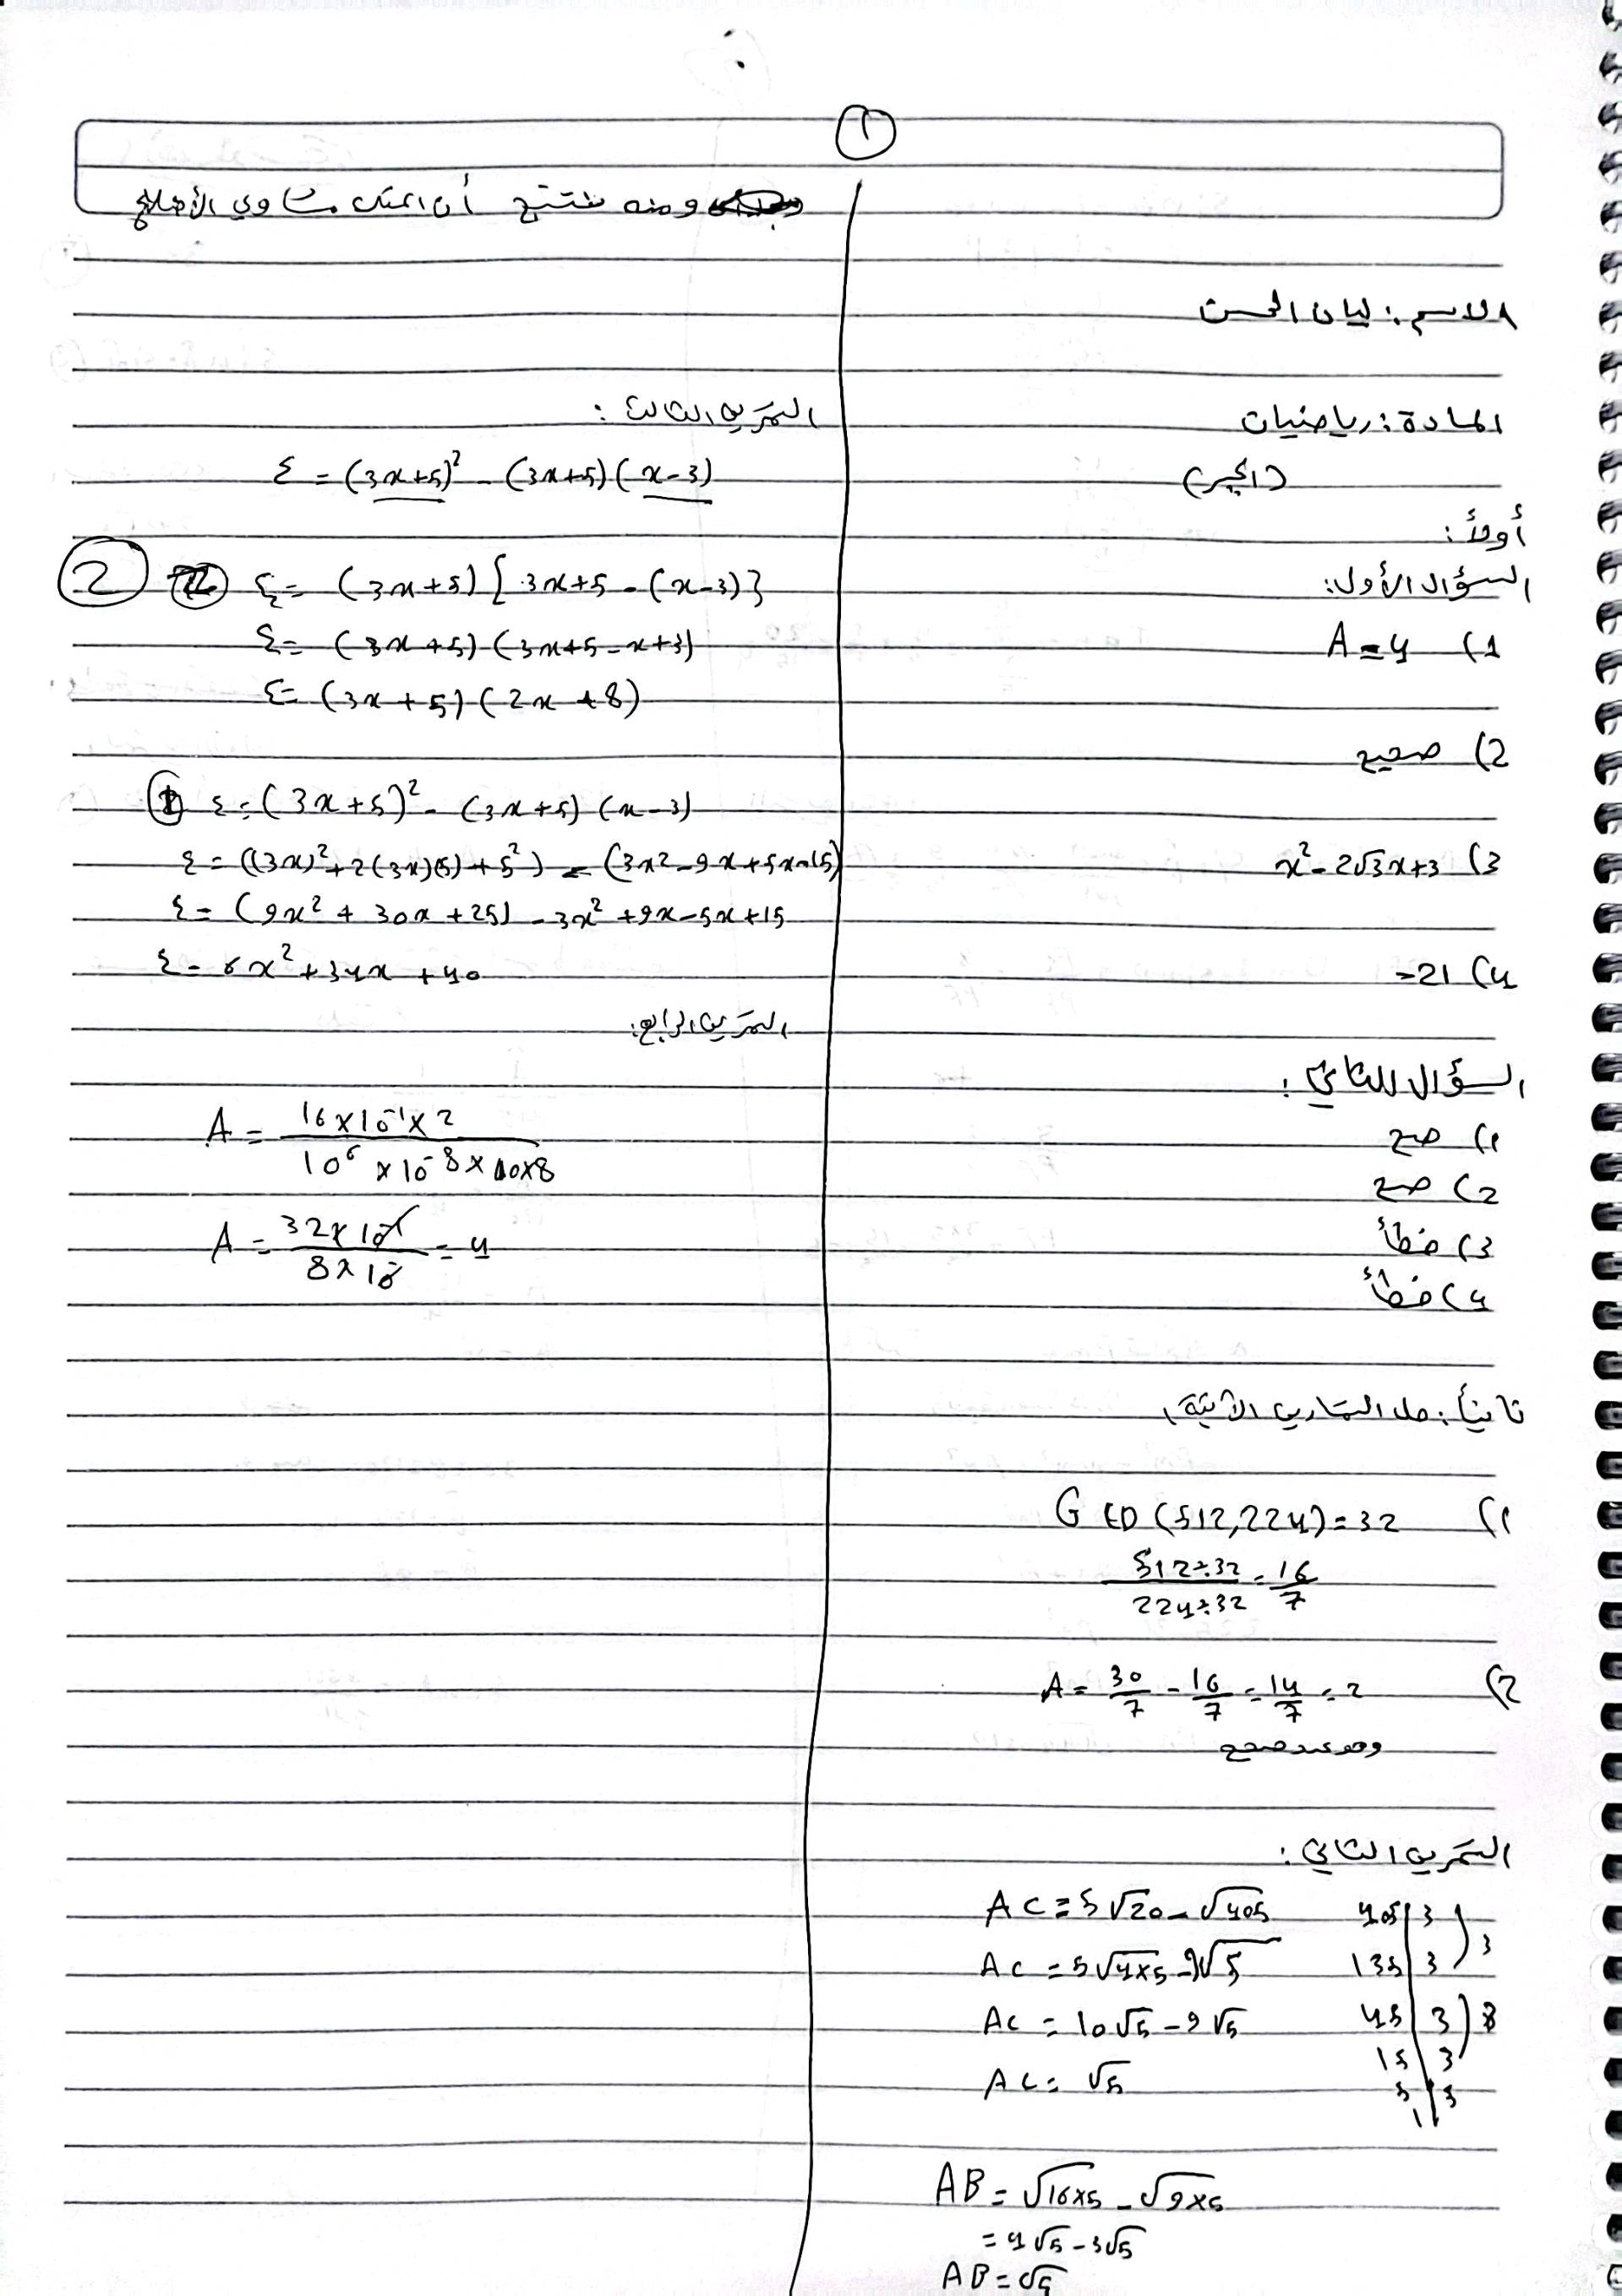 ١
الاسم: ليان الحسن
المادة: رياضيات
(الجبر)
أولاً:
السؤال الأول:
1) A = 4
2) صحيح
3) x² - 2√3x + 3
4) = 21
السؤال الثاني:
1) صح
2) صح
3) خطأ
4) خطأ
ثانياً: حل التمارين الآتية:
1) GCD (512, 224) = 32
512÷32 / 224÷32 = 16/7
2) A = 30/7 - 16/7 = 14/7 = 2
وهو عدد صحيح
التمرين الثاني:
AC = 5√20 - √405
AC = 5√4×5 - 9√5
AC = 10√5 - 9√5
AC = √5
405 | 3
135 | 3
45 | 3
15 | 3
5 | 5
1
AB = √16×5 - √9×5
= 4√5 - 3√5
AB = √5
ومنه نستنتج أن المثلث متساوي الأضلاع
التمرين الثالث:
E = (3x+5)² - (3x+5)(x-3)
2 E = (3x+5) [3x+5 - (x-3)]
E = (3x+5) (3x+5-x+3)
E = (3x+5) (2x+8)
1 E = (3x+5)² - (3x+5) (x-3)
E = ((3x)² + 2(3x)(5) + 5²) - (3x² - 9x + 5x - 15)
E = (9x² + 30x + 25) - 3x² + 9x - 5x + 15
E = 6x² + 34x + 40
التمرين الرابع:
A = 16×10⁻¹×2 / 10⁶×10⁻⁸×10×8
A = 32×10⁻¹ / 8×10⁻¹ = 4